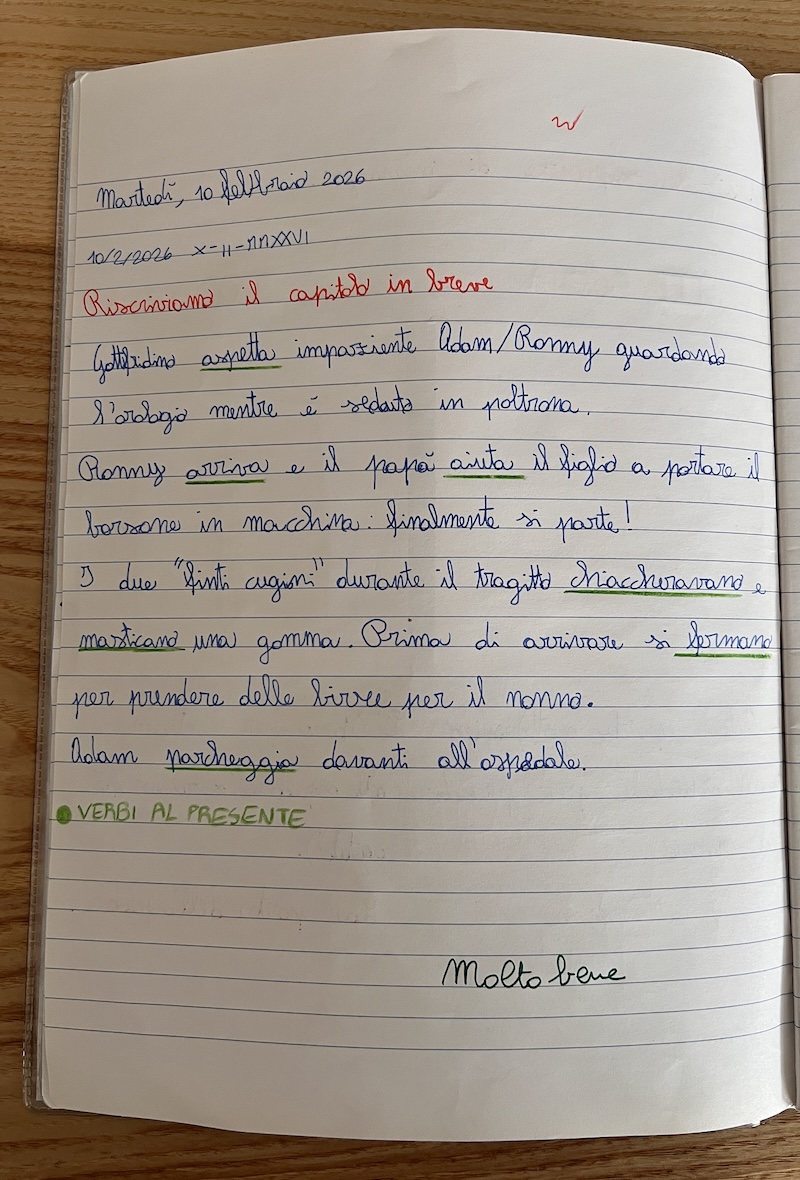 Martedì, 10 febbraio 2026
10/2/2026 X-II-MMXXVI
Riscriviamo il capitolo in breve
Gottfridino aspetta impaziente Adam/Ronny guardando
l'orologio mentre è seduto in poltrona.
Ronny arriva e il papà aiuta il figlio a portare il
borsone in macchina: finalmente si parte!
I due "finti cugini" durante il tragitto chiaccheravano e
masticano una gomma. Prima di arrivare si fermano
per prendere delle birre per il nonno.
Adam parcheggia davanti all'ospedale.
VERBI AL PRESENTE
Molto bene